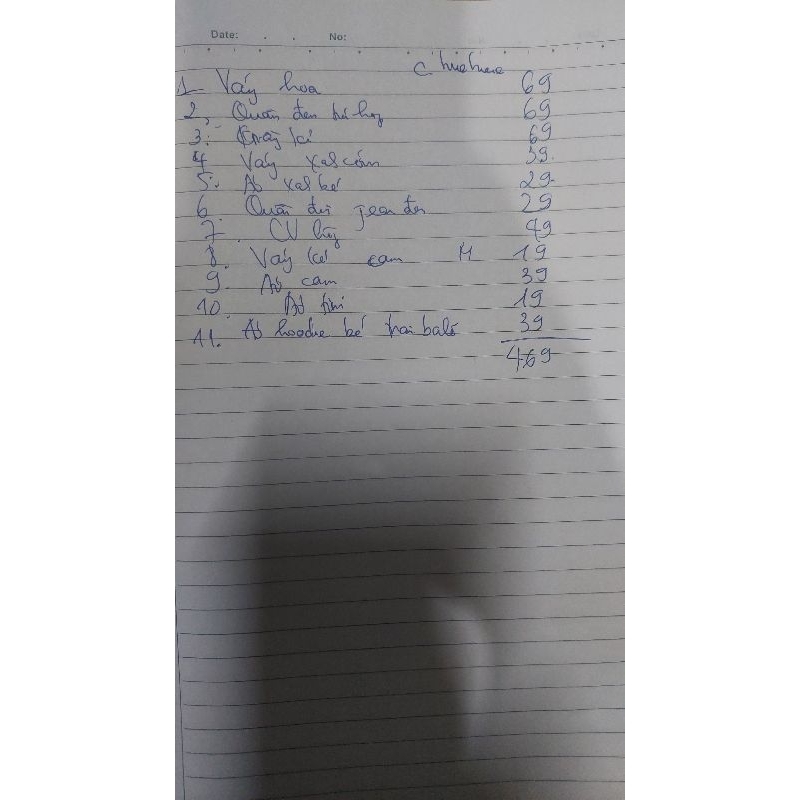 Date: . . No:
c huehuee
1. Váy hoa 69
2, Quần đen túi hộp 69
3. Váy kẻ 69
4 Váy xas cốm 39
5. Áo xas bé 29
6. Quần đùi jean đen 29
7. CV 49
8. Váy kẻ cam M 19
9. Áo cam 39
10. Áo 19
11. Áo hoodie bé trai balo 39
469